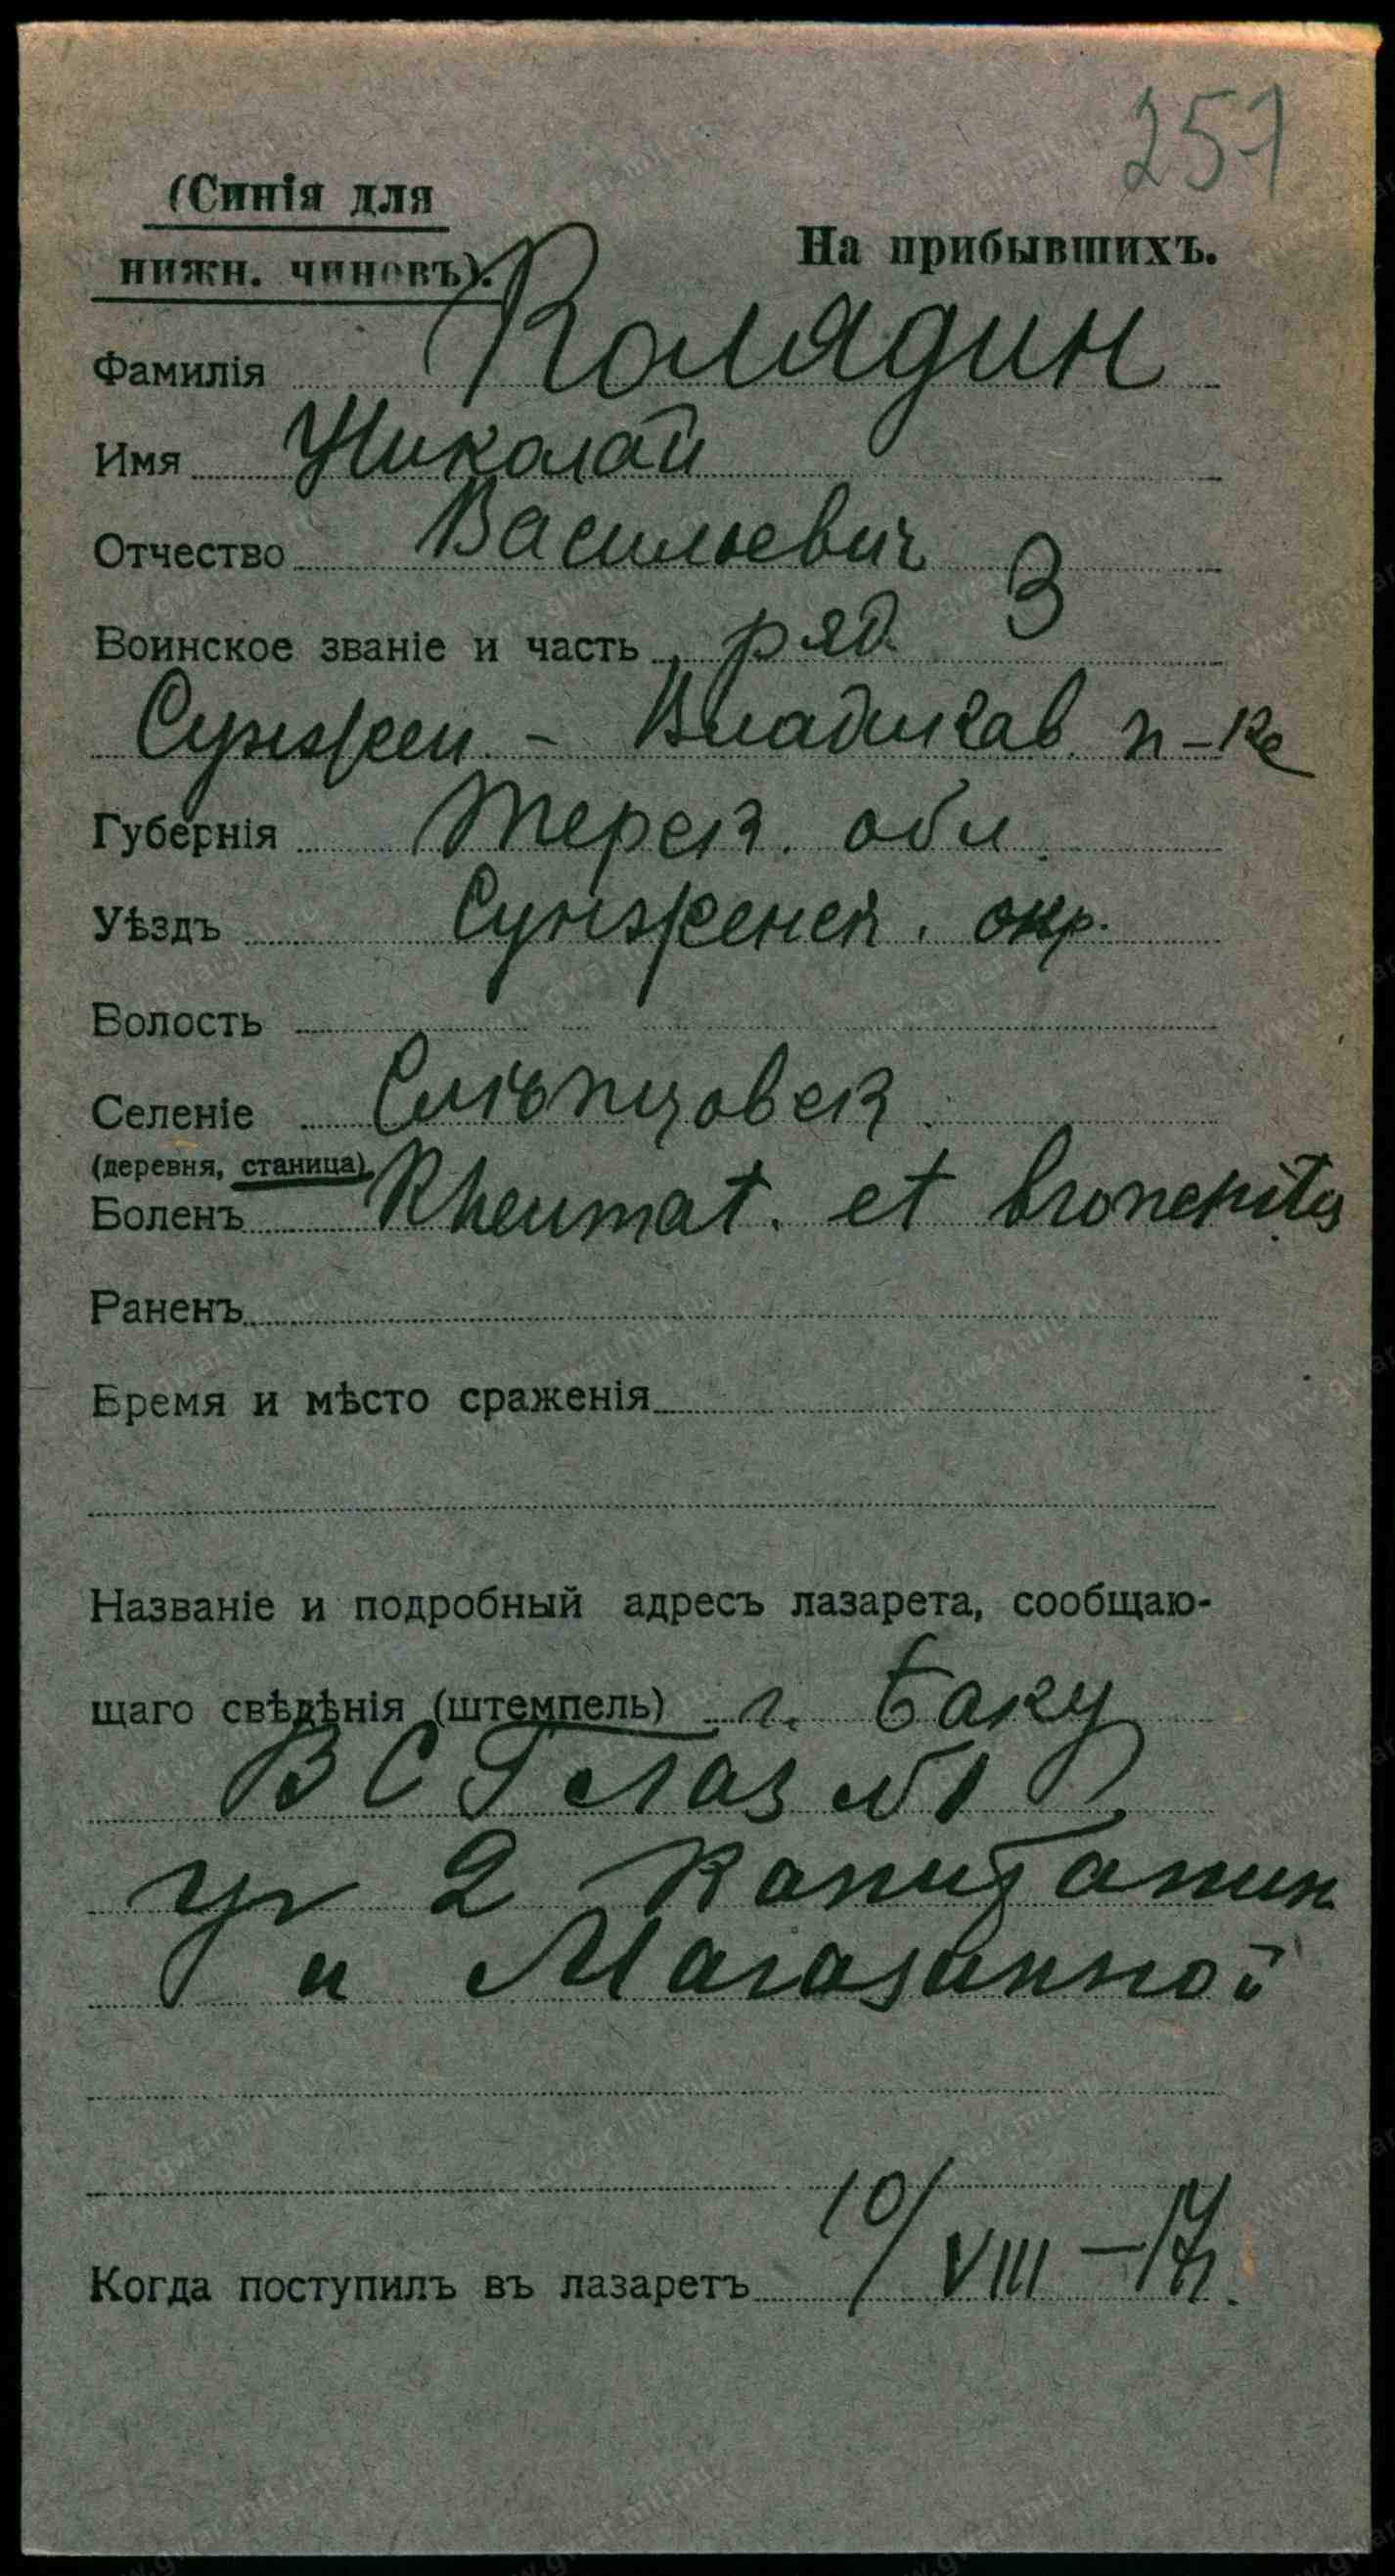 257
(Синія для
нижн. чиновъ).
На прибывшихъ.
Фамилія Колядин
Имя Николай
Отчество Васильевич
Воинское званіе и часть ряд. 3
Сунжен. - Владикав. п-ка
Губернія Терск. обл.
Уѣздъ Сунженск. окр.
Волость
Селеніе Слѣпцовск.
(деревня, станица)
Боленъ Rheumat. et bronchitis
Раненъ
Время и мѣсто сраженія
Названіе и подробный адресъ лазарета, сообщаю-
щаго свѣдѣнія (штемпель) г. Баку
В С Г лаз №1
уг 2 Капитанин
и Магазинной
Когда поступилъ въ лазаретъ 10/VIII-17